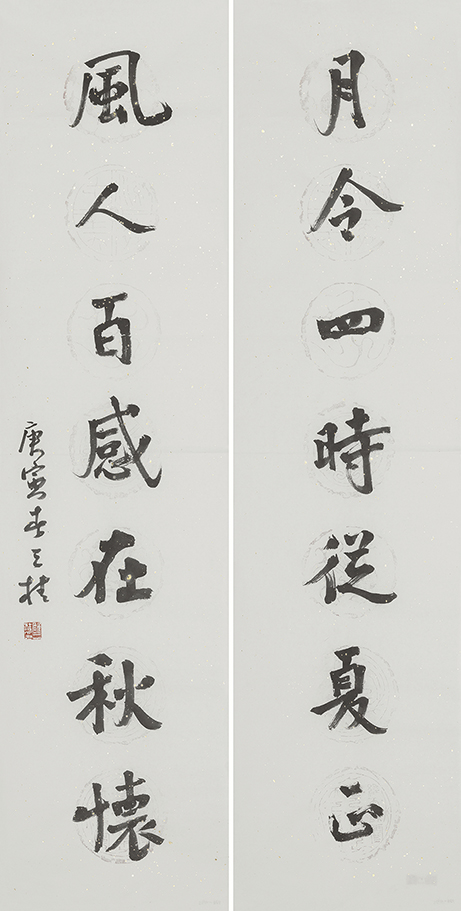 月令四時從夏正
風人百感在秋懷
庚寅春之持